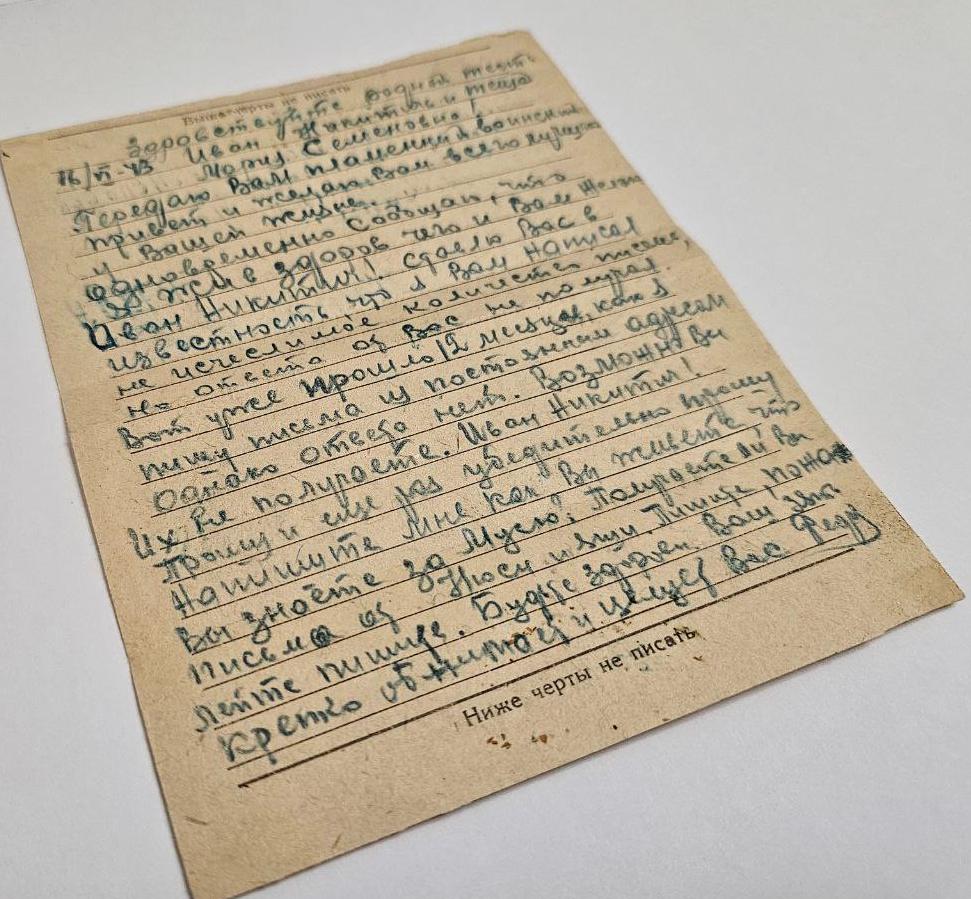 Выше черты не писать
Здравствуйте родной тесть
Иван Никитич и теща
16/VI-43 Мария Семеновна!
Передаю Вам пламенный воинский
привет и желаю Вам всего лучшего
в Вашей жизни.
одновременно Сообщаю, что
я жив здоров чего и Вам желаю
Иван Никитич! ставлю Вас в
известность что я Вам написал
не исчеслимое количество писем,
но ответа от Вас не получал.
Вот уже прошло 12 месяцев, как я
пишу письма из постоянным адресом
Однако ответа нет. Возможно Вы
Их не получаете. Иван Никитич!
Прошу и еще раз убедительно прошу
Напишите мне как Вы живете что
Вы знаете за Мусю? Получаете ли Вы
письма от Нюси и ящи Пишите пожа
лейте пишите. Будьте здоровы Ваш зять
крепко обнимает и целует вас Федя
Ниже черты не писать